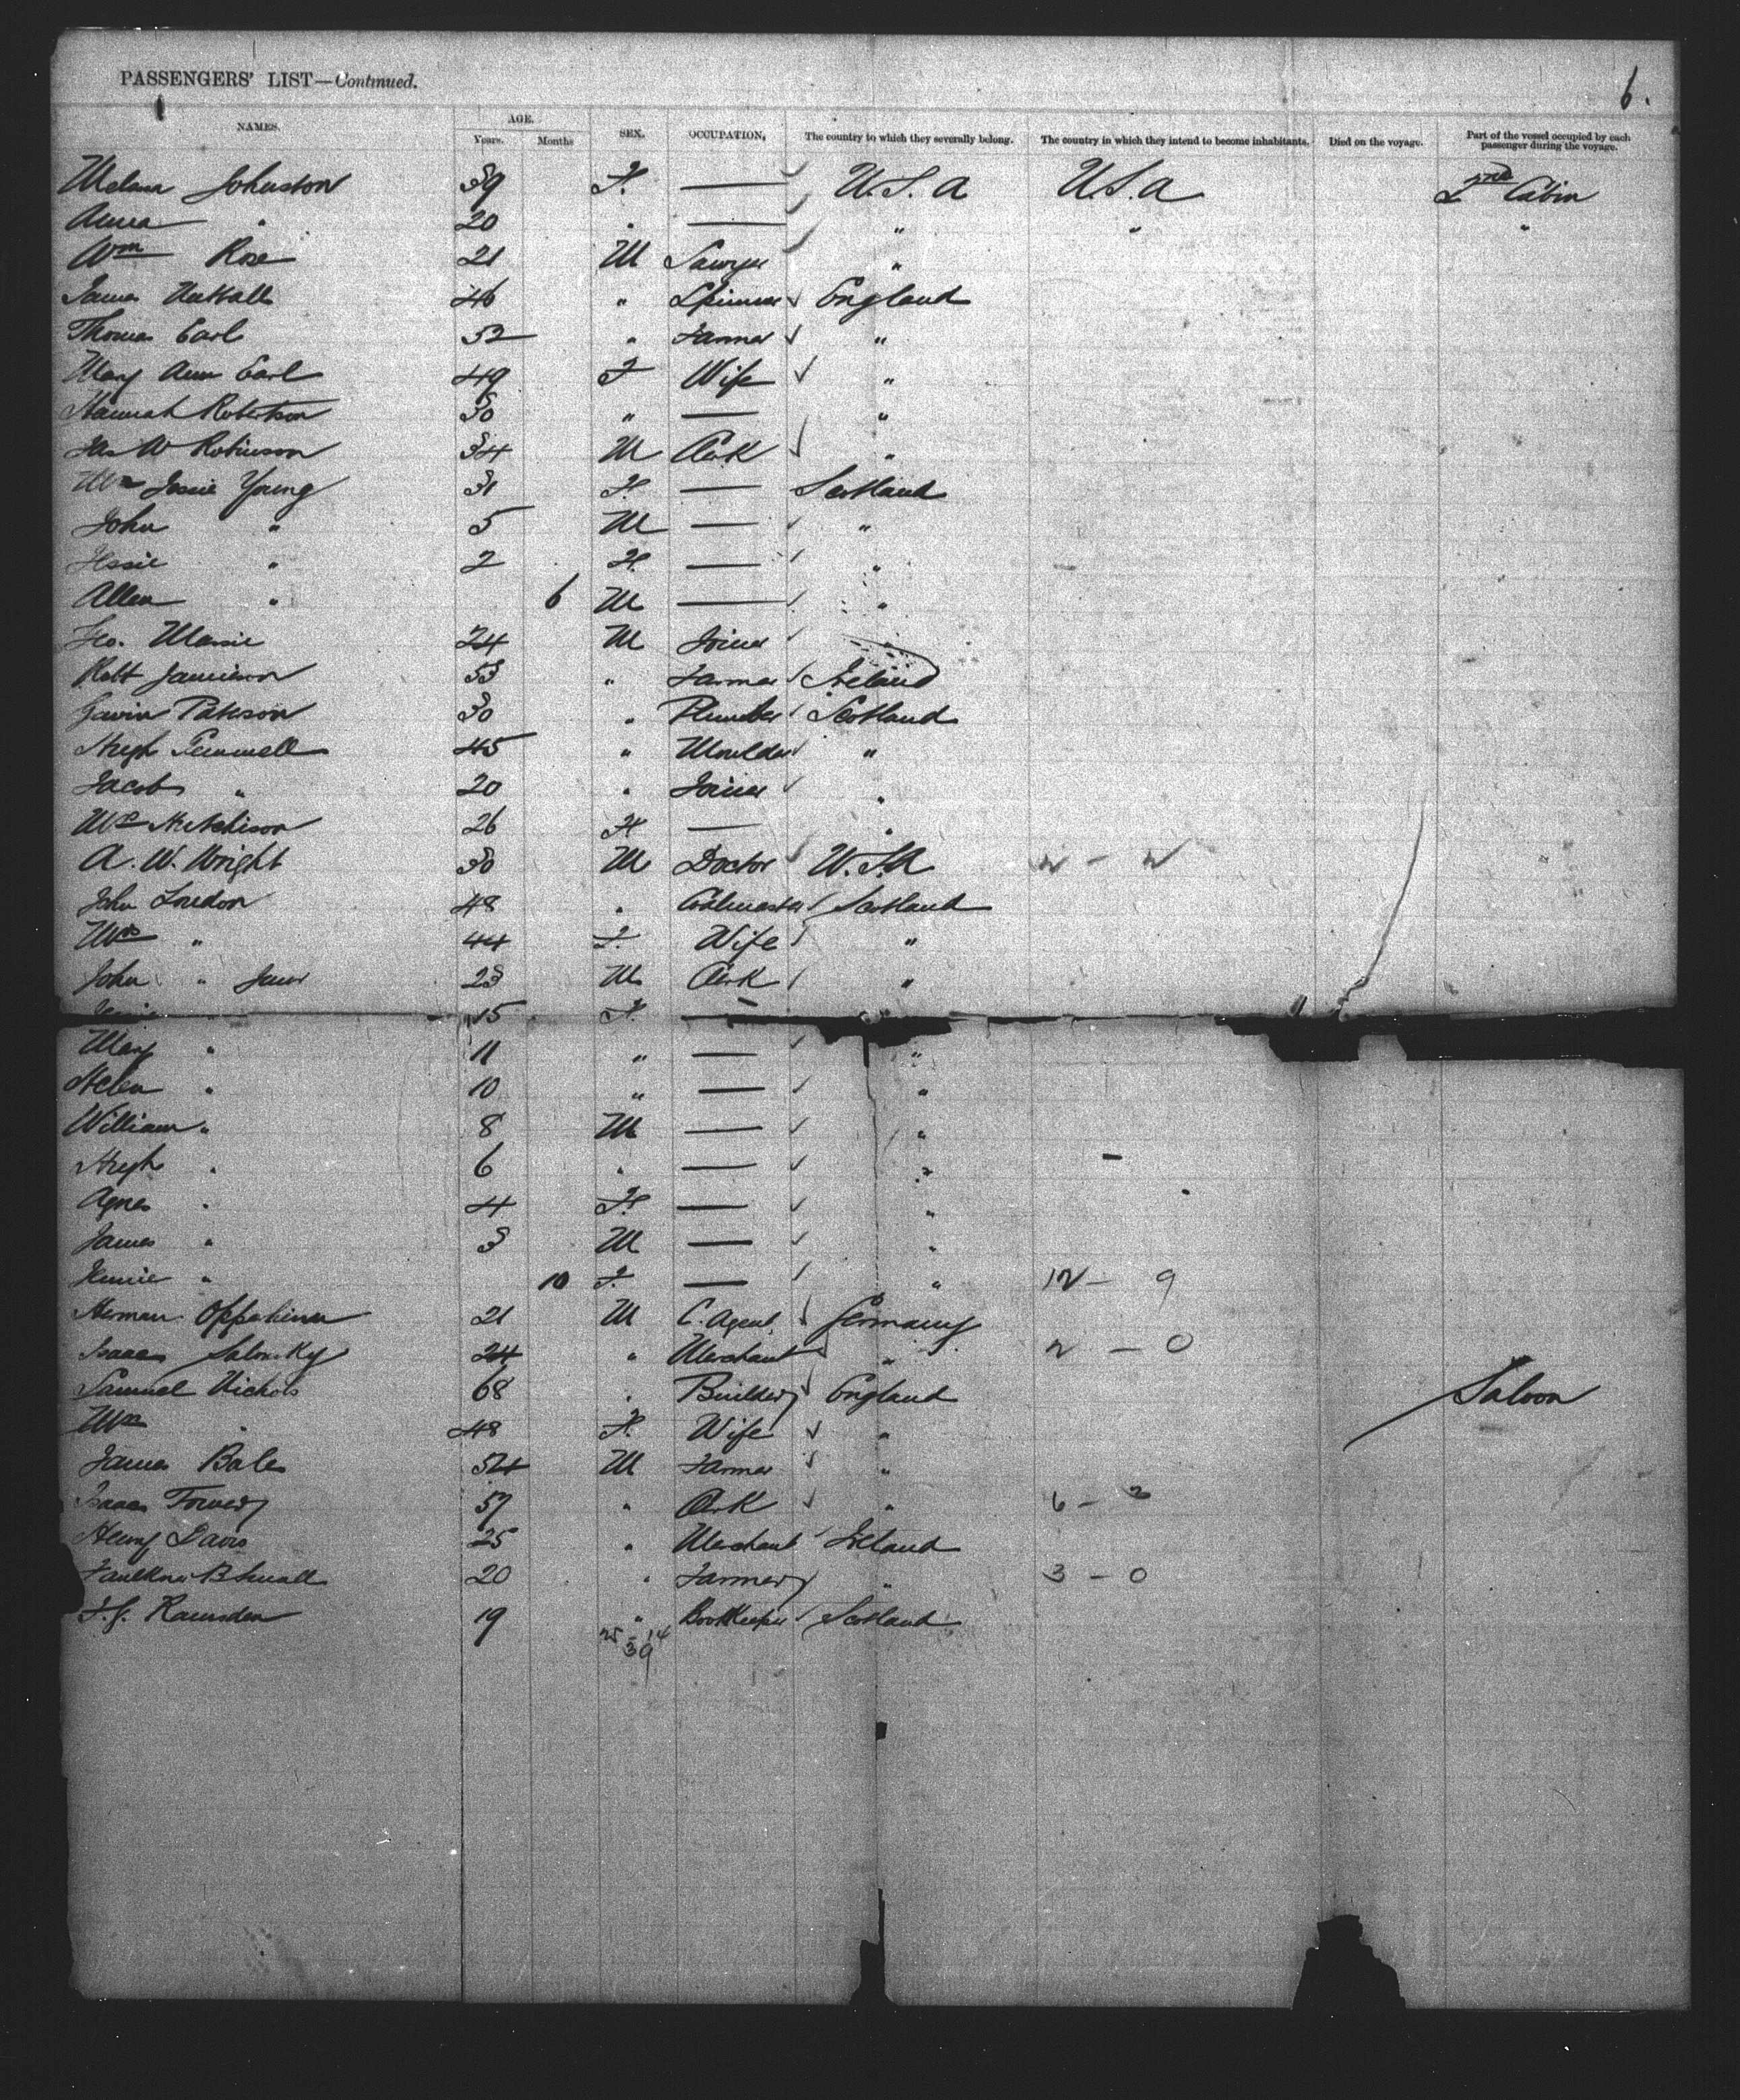 PASSENGERS' LIST—Continued.
6.
NAMES. AGE. Years. Months SEX. OCCUPATION, The country to which they severally belong. The country in which they intend to become inhabitants. Died on the voyage. Part of the vessel occupied by each passenger during the voyage.
Johnston 39 F. — U.S.A U.S.A 2nd Cabin
Anna " 20 " — " " "
Wm Rose 21 M Sawyer "
James Nuttall 46 " Spinner England
Thomas Earl 52 " Farmer "
Mary Ann Earl 49 F Wife "
Hannah Robertson 30 " — "
Jas W Robinson 34 M Clerk "
Mrs Jessie Young 31 F. — Scotland
John " 5 M — "
Jessie " 2 F. — "
Allen " 6 M — "
Geo. Massie 24 M Joiner
Robt Jamieson 53 " Farmer Ireland
Gavin Paterson 30 " Plumber Scotland
Hugh Gemmell 45 " Moulder "
Jacob " 20 " Joiner "
Mrs Hutchison 26 F — "
A. W. Wright 30 M Doctor U.S.A
John Loudon 48 " Coalmaster Scotland
Mrs " 44 F. Wife "
John " Junr 23 M Clerk "
15 F. —
Mary " 11 " — "
Helen " 10 " — "
William " 8 M — "
Hugh " 6 " — "
Agnes " 4 F. — "
James " 3 M — "
Jennie " 10 F. — " 12 — 9
Herman Oppenheimer 21 M C. Agent Germany
Isaac Salonsky 24 " Merchant " 2 — 0
Samuel Nichols 68 " Builder England Saloon
Mrs " 48 F. Wife "
James Bales 54 M Farmer "
Isaac 57 " Clerk " 6 — 2
Henry Davis 25 " Merchant Ireland
Faulkner B Small 20 " Farmer " 3 — 0
F. G. Ramsden 19 " Bookkeeper Scotland
25 14
39